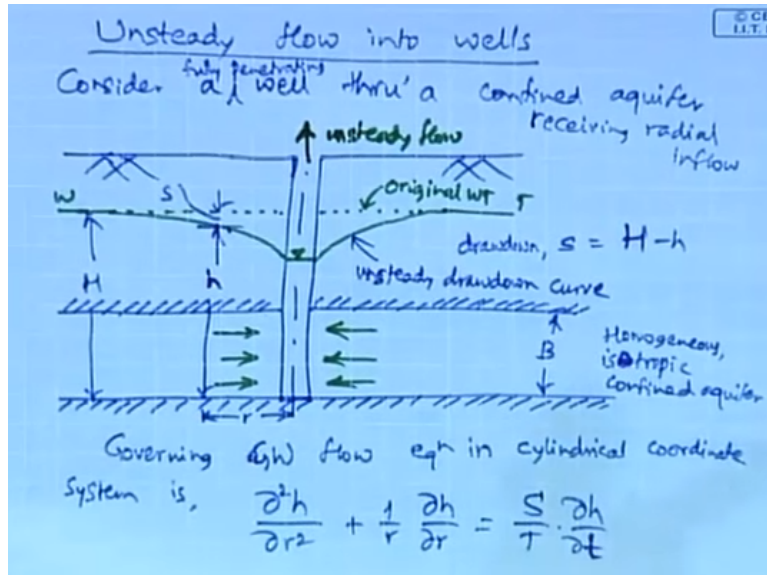 Unsteady flow into wells
© CE
I.I.T.
Consider a fully penetrating well thru' a confined aquifer
receiving radial
inflow
unsteady flow
W
S
original WT
T
drawdown, s = H-h
H
h
unsteady drawdown curve
B
Homogeneous,
isotropic
confined aquifer
r
Governing GW flow eqn in cylindrical coordinate
system is,
∂²h/∂r² + 1/r ∂h/∂r = S/T · ∂h/∂t